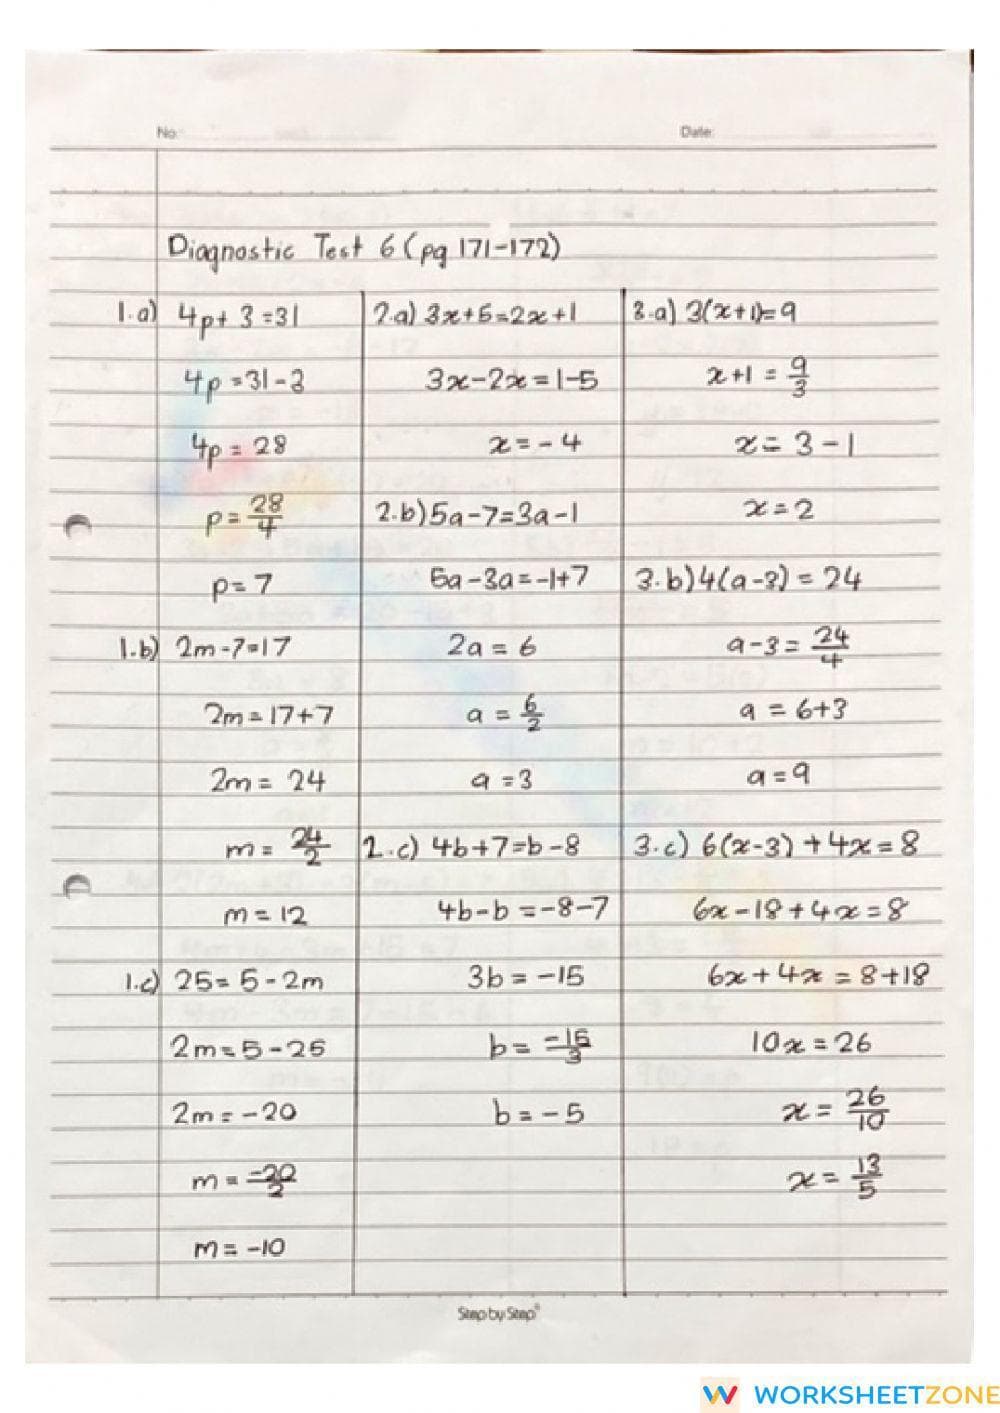 No:
Date:
Diagnostic Test 6 (pg 171-172)
1.a) 4p + 3 = 31
4p = 31 - 3
4p = 28
p = 28/4
p = 7
1.b) 2m - 7 = 17
2m = 17 + 7
2m = 24
m = 24/2
m = 12
1.c) 25 = 5 - 2m
2m = 5 - 25
2m = -20
m = -20/2
m = -10
2.a) 3x + 5 = 2x + 1
3x - 2x = 1 - 5
x = -4
2.b) 5a - 7 = 3a - 1
5a - 3a = -1 + 7
2a = 6
a = 6/2
a = 3
2.c) 4b + 7 = b - 8
4b - b = -8 - 7
3b = -15
b = -15/3
b = -5
3.a) 3(x + 1) = 9
x + 1 = 9/3
x = 3 - 1
x = 2
3.b) 4(a - 3) = 24
a - 3 = 24/4
a = 6 + 3
a = 9
3.c) 6(x - 3) + 4x = 8
6x - 18 + 4x = 8
6x + 4x = 8 + 18
10x = 26
x = 26/10
x = 13/5
Step by Step®
WORKSHEETZONE